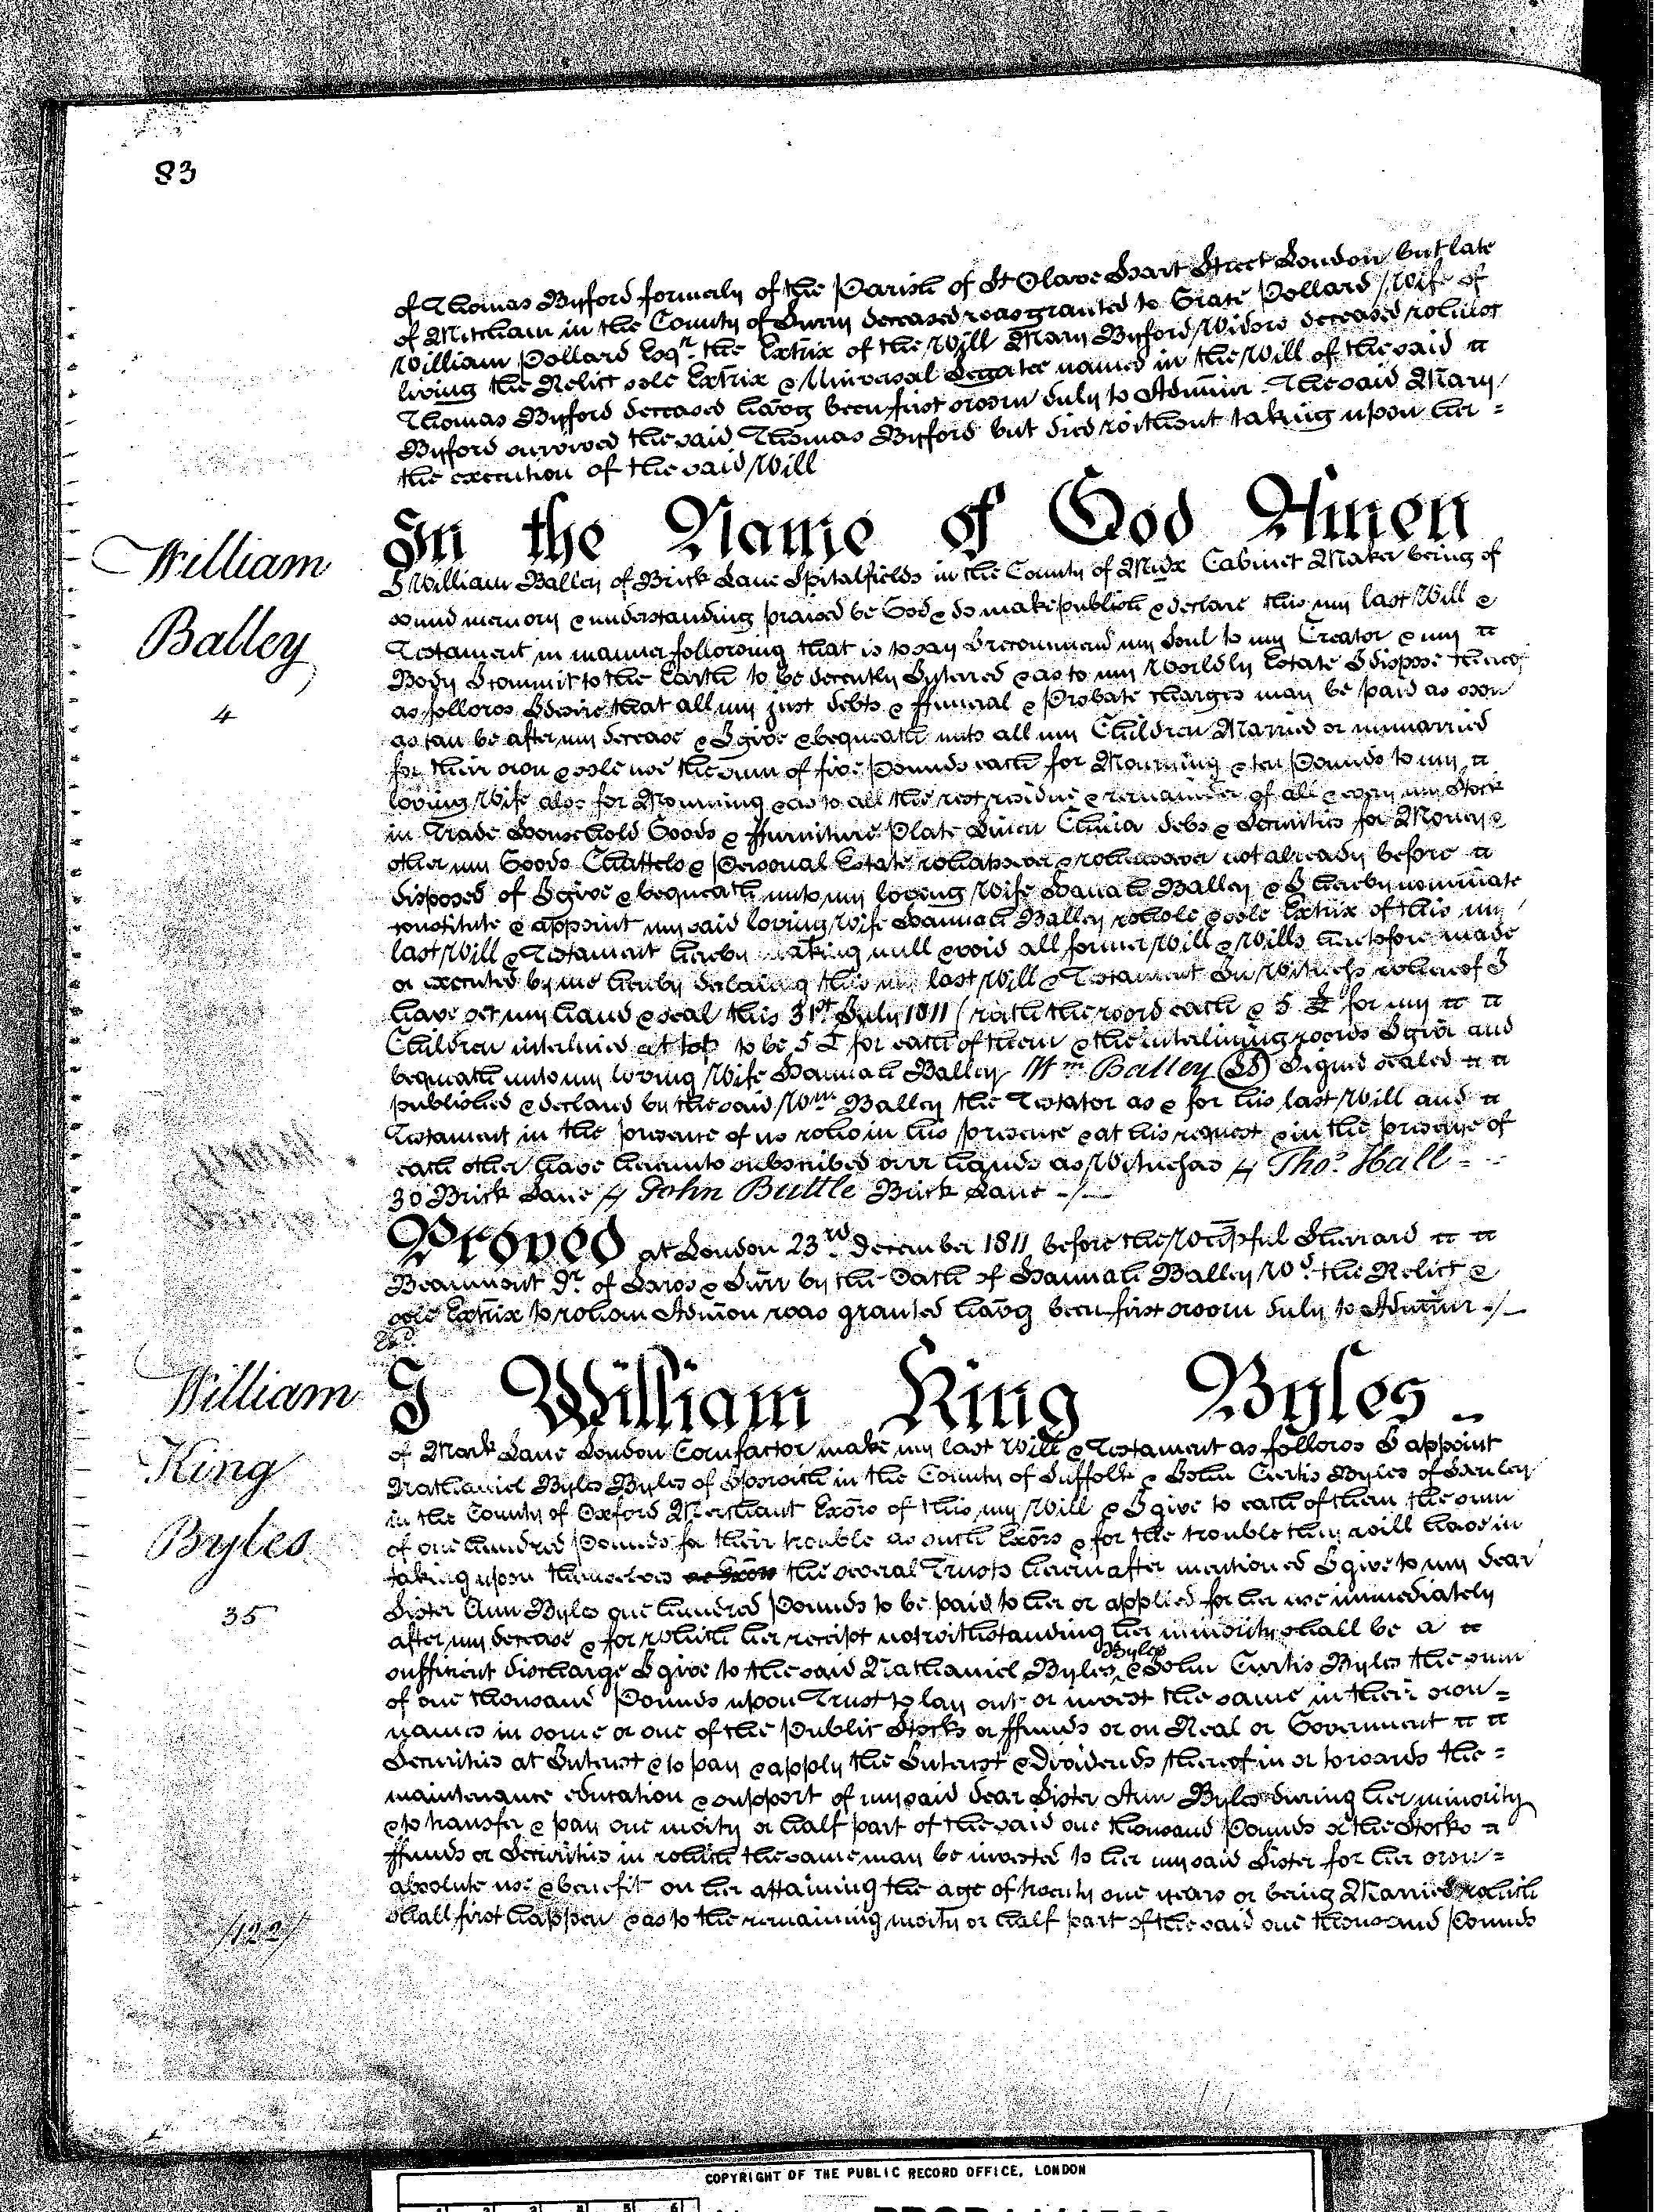 83
of Thomas Byford formerly of the Parish of St Olave Hart Street London but late
of Mitcham in the County of Surry deceased was granted to Grace Pollard Wife of
William Pollard Esqr. the Extrix of the Will Mary Byford Widow deceased whilst
living the Relict sole Extrix & Universal Legatee named in the Will of the said
Thomas Byford deceased havg been first sworn duly to Admin̄r. The said Mary
Byford survived the said Thomas Byford but died without taking upon her =
the execution of the said Will
William
Balley
4
In the Name of God Amen
I William Balley of Brick Lane Spitalfields in the County of Middx Cabinet Maker being of
sound memory & understanding praised be God & do make publish & declare this my last Will &
Testament in manner following that is to say I recommend my Soul to my Creator & my
Body I commit to the Earth to be decently Interred & as to my Worldly Estate I dispose thereof
as follows I desire that all my just debts & ffuneral & Probate charges may be paid as soon
as can be after my decease & I give & bequeath unto all my Children Married or unmarried
for their own & sole use the sum of five Pounds each for Mourning & ten Pounds to my
loving Wife also for Mourning & as to all the rest residue & remainder of all & every my Stock
in Trade Household Goods & ffurniture Plate Linen China debs & Securities for Money &
other my Goods Chattels & Personal Estate whatsoever & wheresoever not already before
disposed of I give & bequeath unto my loving Wife Hanah Balley & I hereby nominate
constitute & appoint my said loving Wife Hannah Balley whole & sole Extrix of this my
last Will & Testament hereby making null & void all former Will & Wills heretofore made
or executed by me hereby declaring this my last Will & Testament In Witness whereof I
have set my hand & seal this 31st July 1811 (with the word each & 5 £ for my
Children interlined at top to be 5 £ for each of them & the interlining words I give and
bequeath unto my loving Wife Hannah Balley Wm Balley (LS) Signed sealed
published & declared by the said Wm Balley the Testator as & for his last Will and
Testament in the presence of us who in his presence & at his request & in the presence of
each other have hereunto subscribed our hands as Witnesses // Thos. Hall = -
30 Brick Lane // John Buttle Brick Lane -/-
Proved at London 23rd December 1811 before the Worspful Sherrard
Beaumont Dr. of Laws & Surr by the Oath of Hannah Balley Wd. the Relict &
sole Extrix to whom Admon was granted havg been first sworn duly to Adminr -/-
William
King
Byles
35
I William King Byles
of Mark Lane London Cornfactor make my last Will & Testament as follows I appoint
Nathaniel Byles Byles of Ipswich in the County of Suffolk & John Curtis Byles of Henley
in the County of Oxford Merchant Exors of this my Will & I give to each of them the sum
of one hundred Pounds for their trouble as such Exors & for the trouble they will have in
taking upon themselves as Exors the several Trusts hereinafter mentioned I give to my dear
Sister Ann Byles one hundred Pounds to be paid to her or applied for her use immediately
after my decease & for which her receipt notwithstanding her minority shall be a
sufficient discharge I give to the said Nathaniel Byles Byles & John Curtis Byles the sum
of one thousand Pounds upon Trust to lay out or invest the same in their own =
names in some or one of the Public Stocks or ffunds or on Real or Government
Securities at Interest & to pay & apply the Interest & Dividends thereof in or towards the =
maintenance education & support of my said dear Sister Ann Byles during her minority
& to transfer & pay one moity or half part of the said one thousand Pounds or the Stocks
ffunds or Securities in which the same may be invested to her my said Sister for her own =
absolute use & benefit on her attaining the age of twenty one years or being Married which
shall first happen & as to the remaining moity or half part of the said one thousand Pounds
COPYRIGHT OF THE PUBLIC RECORD OFFICE, LONDON